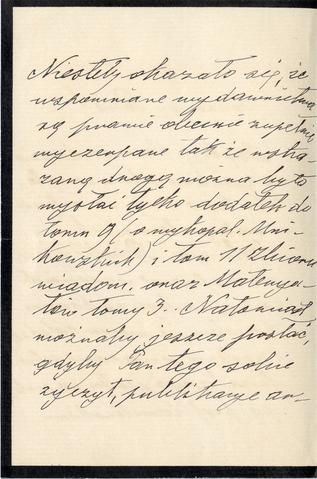 Niestety okazało się, że
wspomniane wydawnictwa
są prawie obecnie zupełnie
wyczerpane tak że wska-
zaną drogą można było
wysłać tylko dodatek do
tomu 9 (o wykopal. Mni-
kowskich) i tom 11 Zbioru
wiadom. oraz Materya-
łów tomy 3. Natomiast
możnaby jeszcze posłać,
gdyby Pan tego sobie
życzył, publikacye an-